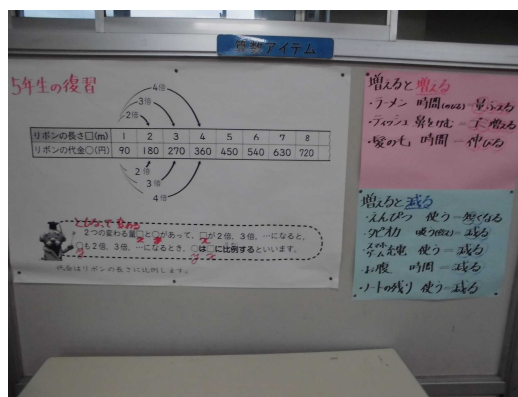 算数アイテム
5年生の復習
4倍
3倍
2倍
リボンの長さ□(m) 1 2 3 4 5 6 7 8
リボンの代金○(円) 90 180 270 360 450 540 630 720
2倍
3倍
4倍
ともなって変わる
2つの変わる量□と○があって、□が2倍、3倍、…になると、
○も2倍、3倍、…になるとき、○は□に比例するといいます。
代金はリボンの長さに比例します。
増えると増える
・ラーメン 時間(のびる)―量ふえる
・ティッシュ 鼻をかむ―ゴミ増える
・髪の毛 時間―伸びる
増えると減る
・えんぴつ 使う―短くなる
・タピオカ 吸う―減る
・スマホ ゲーム 充電 使う―減る
・お腹 時間―減る
・ノートの残り 使う―減る